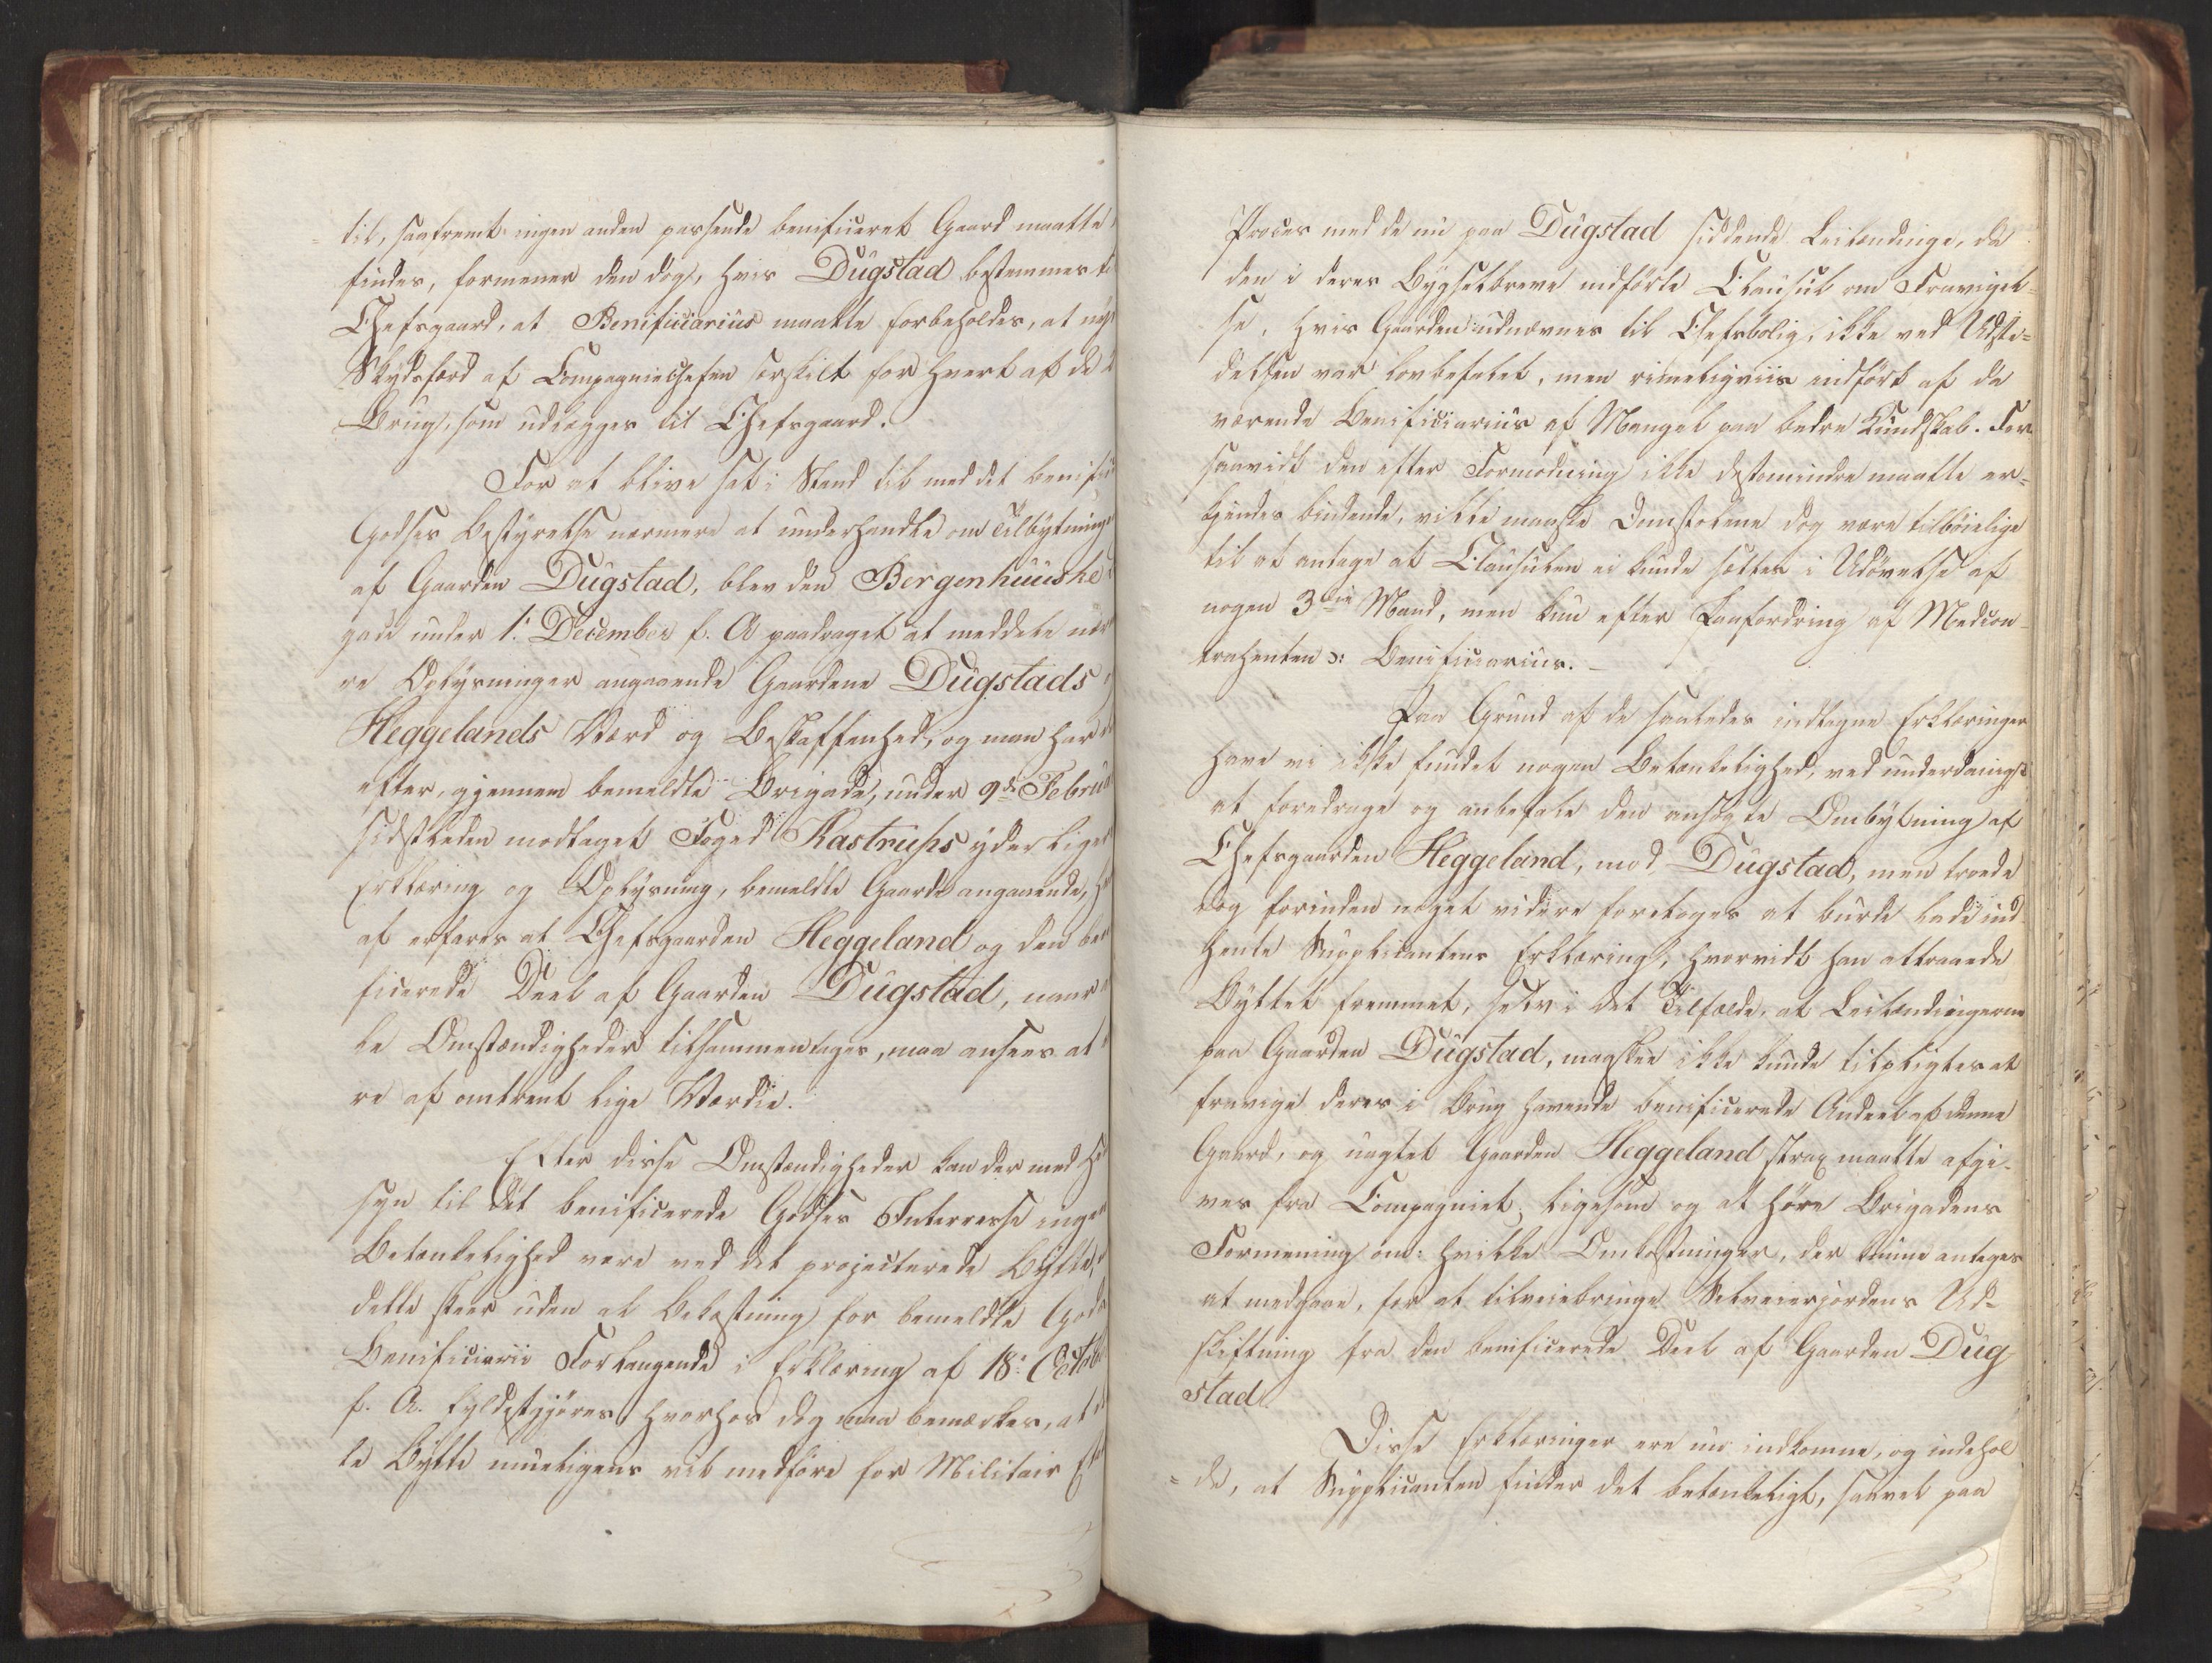 til, saafremt ingen anden passende benificeret Gaard maatte
findes, formener den dog, hvis Dugstad bestemmes
Chefsgaard, at Benificiarius maatte forbeholdes, at
Skydsfærd af Compagniechefen særskilt for hvert af de
Brug, som udlægges til Chefsgaard.
For at blive sat i Stand til med det
Godses Bestyrelse nærmere at underhandle om Tilbytning
af Gaarden Dugstad, blev den Bergenhuuske
gade under 1: December f. A paadraget at meddele
re Oplysninger angaaende Gaardene Dugstads
Heggelands Værd og Beskaffenhed, og man har
efter, gjennem bemeldte Brigade, under 9de
sidstleden modtaget Foged Kastrups yderlige
Erklæring og Oplysning, bemeldte Gaarde angaaende,
af erfares at Chefsgaarden Heggeland og den
ficerede Deel af Gaarden Dugstad, naar
le Omstændigheder tilsammentages, maa ansees at
re af omtrent lige Værdie.
Efter disse Omstændigheder kan der med
syn til det benificerede Godses Interesse
Betænkelighed være ved det projecterede Bytte,
dette skeer uden al Bekostning for bemeldte
Benificiarii Forlangende i Erklæring af 18:
f. A. fyldestgjøres, hvorhos dog maa bemærkes, at
te Bytte mueligens vil medføre for Militair
Proces med de nu paa Dugstad siddende Leilændinge, da
den i deres Bygselbreve indførte Clausul om Fravigel-
se, hvis Gaarden udnævnes til Chefsbolig, ikke ved Udste-
delsen var lovbefalet, men rimeligviis indført af da
værende Benificiarius af Mangel paa bedre Kundskab. For
saavidt den efter Formodning ikke destomindre maatte er-
kjendes bindende, ville maaske Domstolene dog være tilbøielige
til at antage at Clausulen ei kunde sættes i Udøvelse af
nogen 3die Mand, men kun efter Paafordring af Medcon-
trahenten ɔ: Benificiarius.
Paa Grund af de saaledes indtagne Erklæringer
have vi ikke fundet nogen Betænkelighed, ved underdanigst
at foredrage og anbefale den ansøgte Ombytning af
Chefsgaarden Heggeland, mod Dugstad, men troede
dog forinden noget videre foretoges at burde lade ind
hente Supplicantens Erklæring, hvorvidt han attraaede
Byttet fremmet, selv i det Tilfælde, at Leilændingerne
paa Gaarden Dugstad, maaskee ikke kunde tilpligtes at
fravige deres i Brug havende benificerede Andeel af denne
Gaard, og uagtet Gaarden Heggeland strax maatte afgi-
ves fra Compagniet, ligesom og at høre Brigadens
Formening om: hvilke Omkostninger, der kunne antages
at medgaae, for at tilveiebringe Selveierjordens Ud-
skiftning fra den benificerede Deel af Gaarden Dug
stad
Disse Erklæringer ere nu indkomne, og indehol
de, at Supplicanten finder det betænkeligt, saavel paa